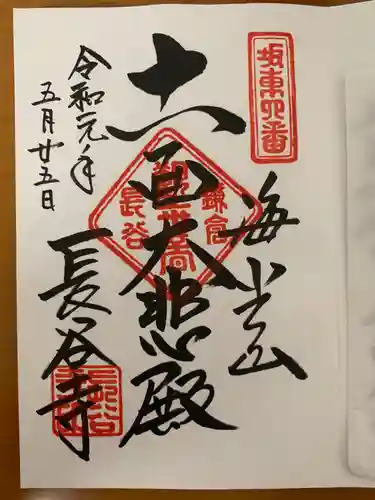 坂東四番
海光山
十一面大悲殿
鎌倉
観世音
長谷
令和元年
五月廿五日
長谷寺